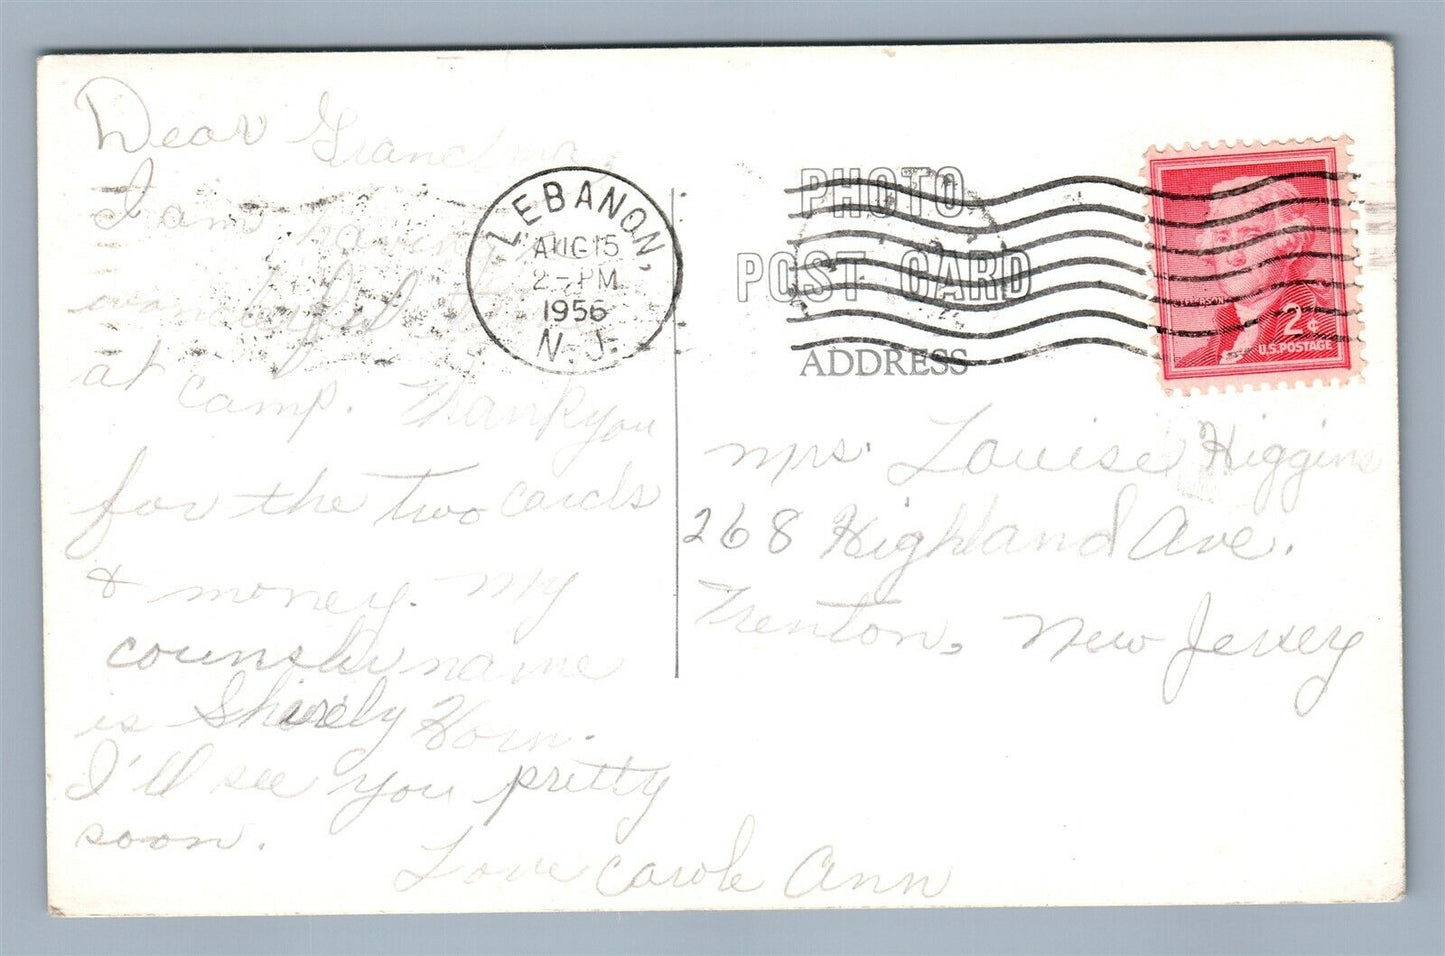 Dear Grandma,
I am having a
wonderful time
at camp. Thank you
for the two cards
& money. My
counslur name
is Shirely Horn.
I'll see you pretty
soon.
Love Carole Ann
LEBANON,
AUG 15
2-PM
1956
N.J.
PHOTO
POST CARD
ADDRESS
JEFFERSON
2¢
U.S. POSTAGE
Mrs. Louise Higgins
268 Highland Ave.
Trenton, New Jersey